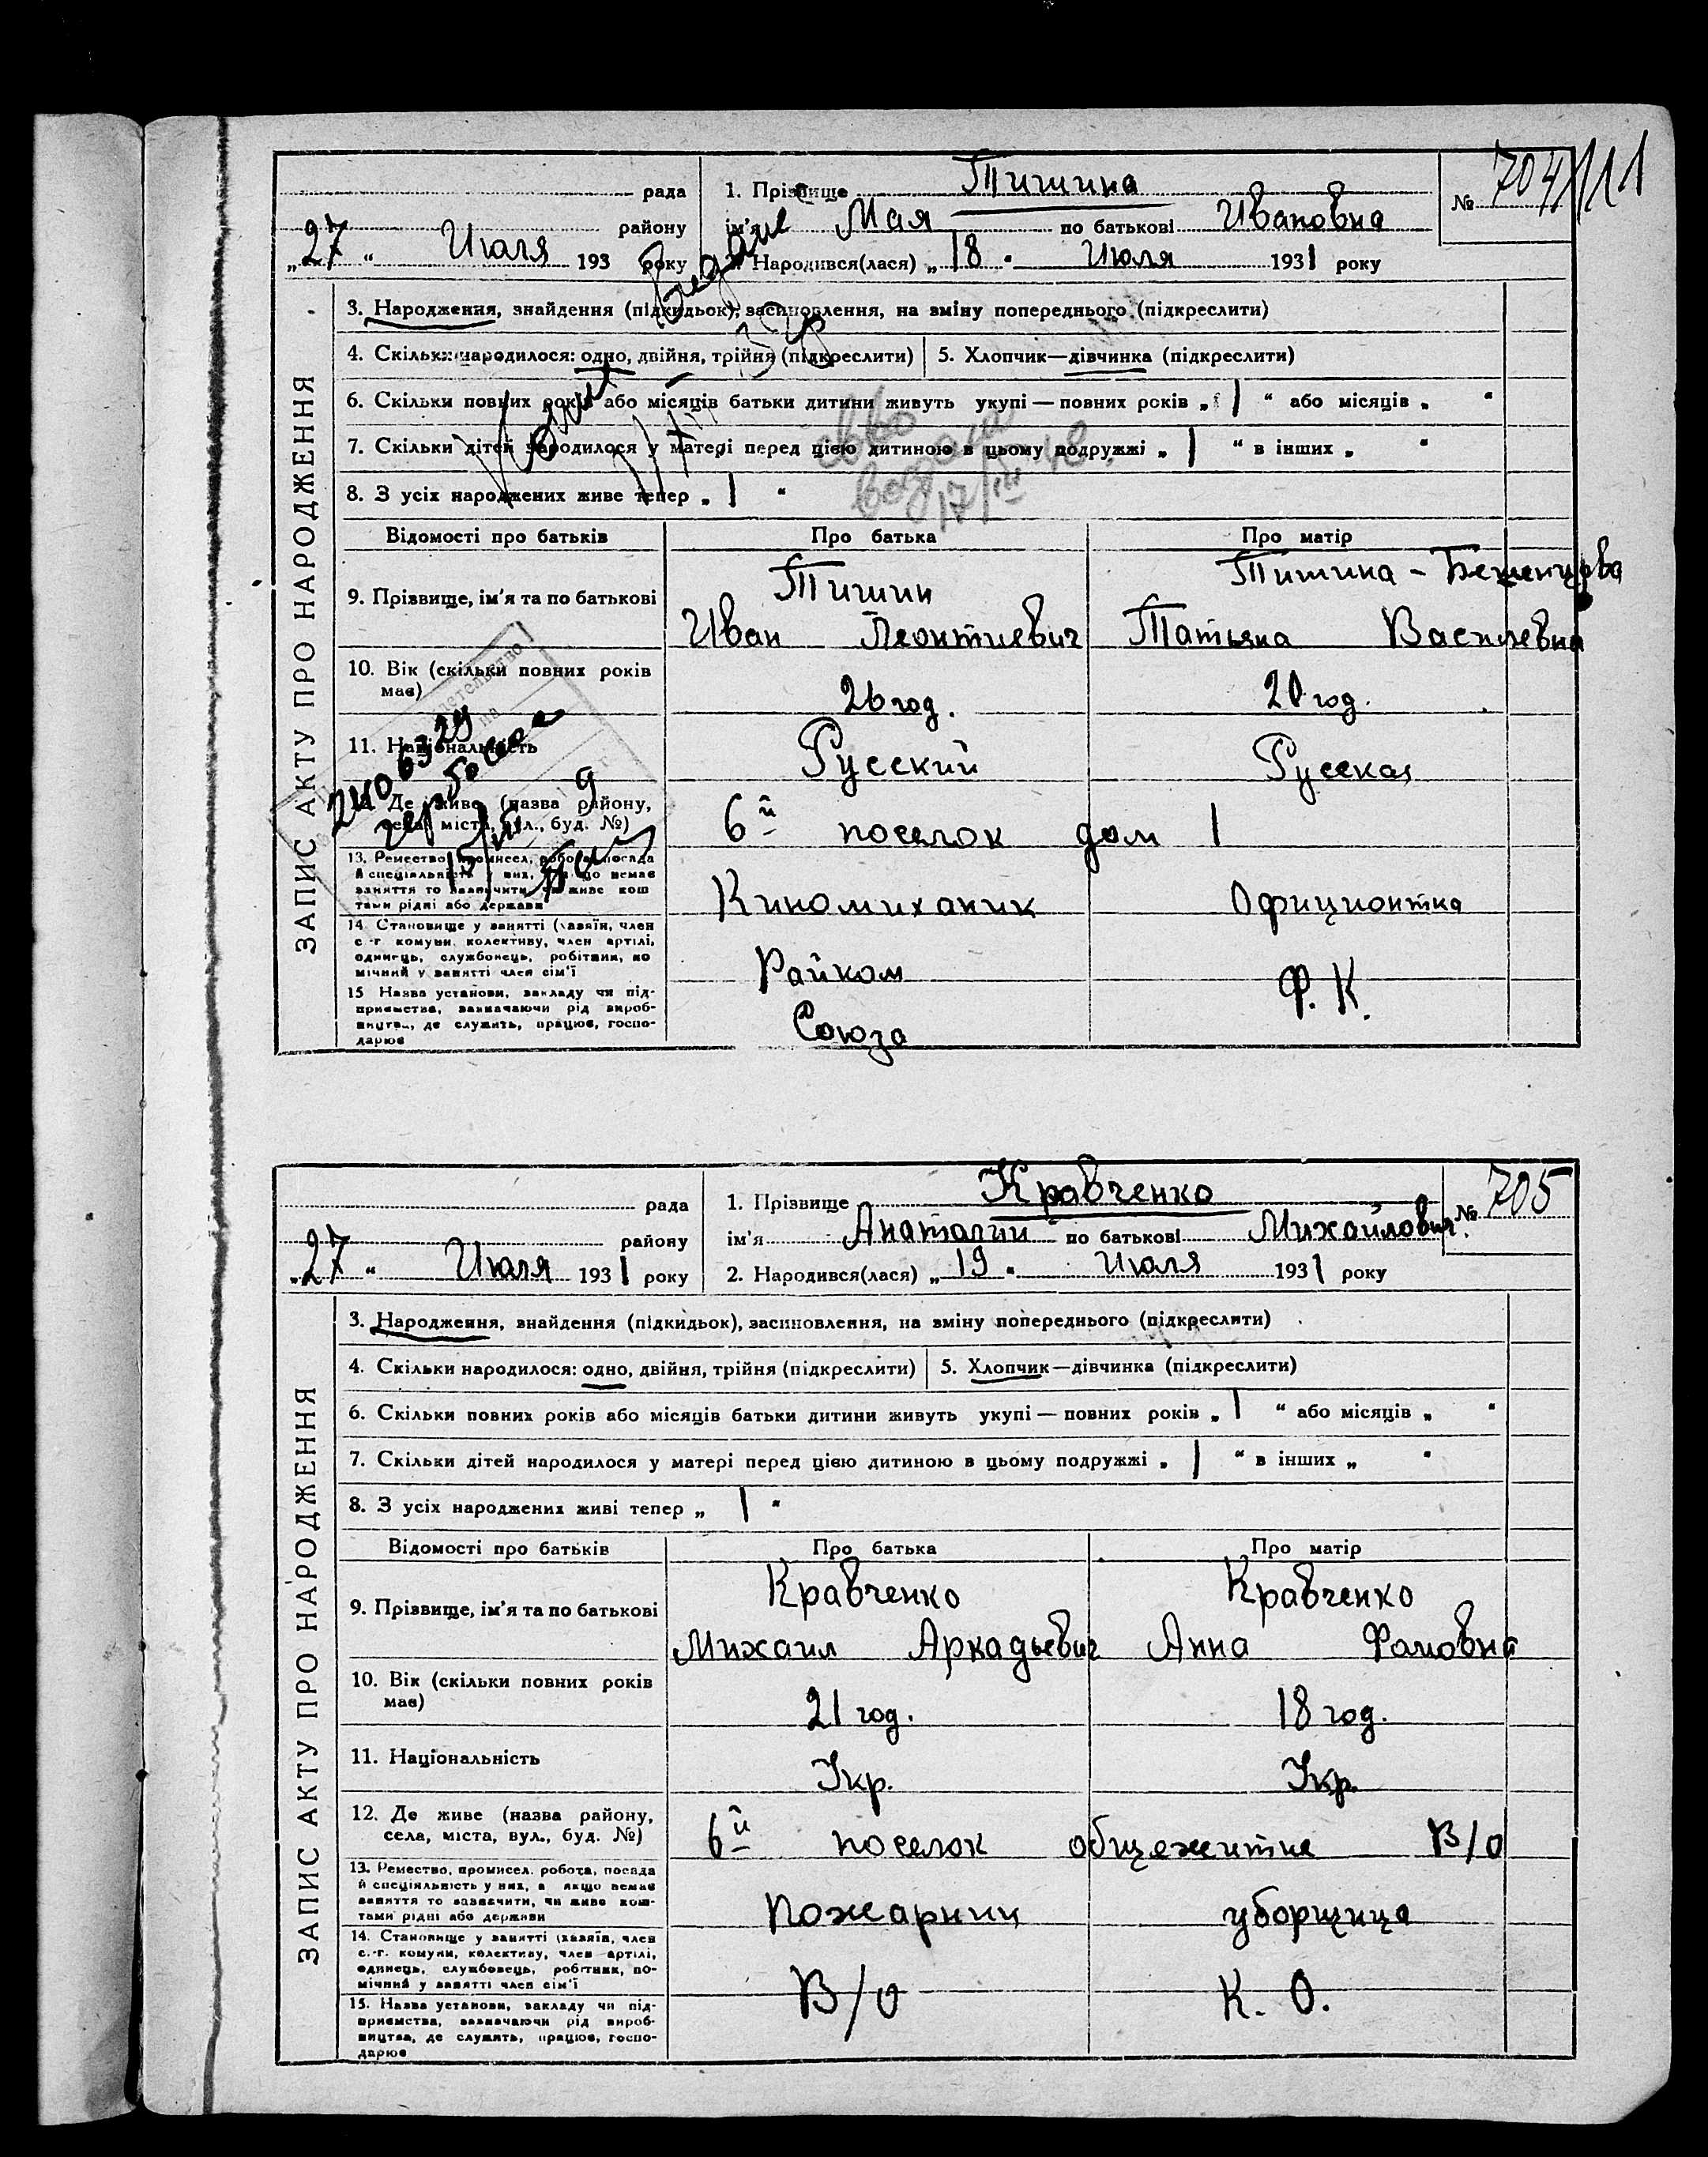 рада
району
„27“ Июля 193 року
1. Прізвище Тишина
ім'я Мая по батькові Ивановна
2. Народився(лася) „18“ Июля 1931 року
№ 704
ЗАПИС АКТУ ПРО НАРОДЖЕННЯ
3. Народження, знайдення (підкидьок), засиновлення, на зміну попереднього (підкреслити)
4. Скільки народилося: одно, двійня, трійня (підкреслити) 5. Хлопчик—дівчинка (підкреслити)
6. Скільки повних років або місяців батьки дитини живуть укупі — повних років „1“ або місяців „ “
7. Скільки дітей народилося у матері перед цією дитиною в цьому подружжі „1“ в інших „ “
8. З усіх народжених живе тепер „1“
Відомості про батьків Про батька Про матір
9. Прізвище, ім'я та по батькові
Тишин
Иван Леонтиевич
Тишина -
Татьяна Василевна
10. Вік (скільки повних років має) 26 год. 20 год.
11. Національність Русский Русская
12. Де живе (назва району, села, міста, вул., буд. №) 6й поселок дом 1
13. Ремество, промисел, робота, посада й спеціальність у них, а якщо немає заняття то зазначити, чи живе коштами рідні або держави
Киномиханик Официонтка
14. Становище у занятті (хазяїн, член с.-г. комуни, колективу, член артілі, одинець, службовець, робітник, помічний у занятті член сім'ї
15 Назва установи, закладу чи підприємства, зазначаючи рід виробництва, де служить, працює, господарює
Райком
Союза
Ф. К.
рада
району
„27“ Июля 1931 року
1. Прізвище Кравченко
ім'я Анатолий по батькові Михайлович.
2. Народився(лася) „19“ Июля 1931 року
№ 705
ЗАПИС АКТУ ПРО НАРОДЖЕННЯ
3. Народження, знайдення (підкидьок), засиновлення, на зміну попереднього (підкреслити)
4. Скільки народилося: одно, двійня, трійня (підкреслити) 5. Хлопчик—дівчинка (підкреслити)
6. Скільки повних років або місяців батьки дитини живуть укупі — повних років „1“ або місяців „ “
7. Скільки дітей народилося у матері перед цією дитиною в цьому подружжі „1“ в інших „ “
8. З усіх народжених живі тепер „1“
Відомості про батьків Про батька Про матір
9. Прізвище, ім'я та по батькові
Кравченко Кравченко
Михаил Аркадьевич Анна
10. Вік (скільки повних років має) 21 год. 18 год.
11. Національність Укр. Укр.
12. Де живе (назва району, села, міста, вул., буд. №) 6й поселок общежитие В/О
13. Ремество, промисел, робота, посада й спеціальність у них, а якщо немає заняття то зазначити, чи живе коштами рідні або держави
уборщица
14. Становище у занятті (хазяїн, член с.-г. комуни, колективу, член артілі, одинець, службовець, робітник, помічний у занятті член сім'ї
В/О К. О.
15. Назва установи, закладу чи підприємства, зазначаючи рід виробництва, де служить, працює, господарює